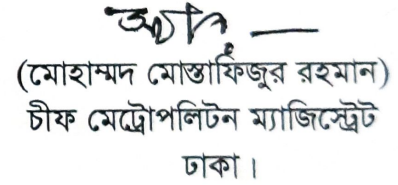 (মোহাম্মদ মোস্তাফিজুর রহমান)
চীফ মেট্রোপলিটন ম্যাজিস্ট্রেট
ঢাকা।